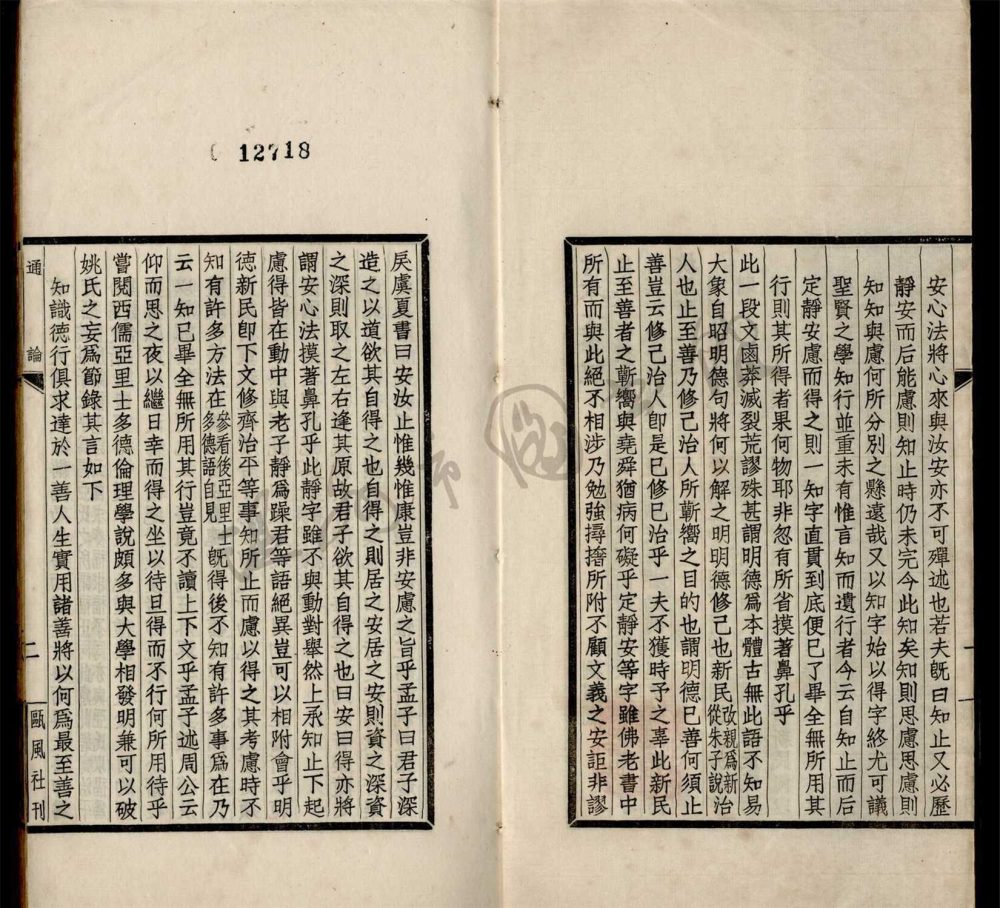 安心法將心來與汝安亦不可殫述也若夫旣曰知止又必歷
靜安而后能慮則知止時仍未完今此知矣知則思慮思慮則
知知與慮何所分別之懸遠哉又以知字始以得字終尤可議
聖賢之學知行並重未有惟言知而遺行者今云自知止而后
定靜安慮而得之則一知字直貫到底便已了畢全無所用其
行則其所得者果何物耶非忽有所省摸著鼻孔乎
此一段文鹵莽滅裂荒謬殊甚謂明德爲本體古無此語不知易
大象自昭明德句將何以解之明明德修己也新民改親爲新從朱子說治
人也止至善乃修己治人所蘄嚮之目的也謂明德已善何須止
善豈云修己治人卽是已修已治乎一夫不獲時予之辜此新民
止至善者之蘄嚮與堯舜猶病何礙乎定靜安等字雖佛老書中
所有而與此絕不相涉乃勉強撏撦所附不顧文義之安詎非謬
戾虞夏書曰安汝止惟幾惟康豈非安慮之旨乎孟子曰君子深
造之以道欲其自得之也自得之則居之安居之安則資之深資
之深則取之左右逢其原故君子欲其自得之也曰安曰得亦將
謂安心法摸著鼻孔乎此靜字雖不與動對舉然上承知止下起
慮得皆在動中與老子靜爲躁君等語絕異豈可以相附會乎明
德新民卽下文修齊治平等事知所止而慮以得之其考慮時不
知有許多方法在參看後亞里士多德語自見旣得後不知有許多事爲在乃
云一知已畢全無所用其行豈竟不讀上下文乎孟子述周公云
仰而思之夜以繼日幸而得之坐以待旦得而不行何所用待乎
嘗閱西儒亞里士多德倫理學說頗多與大學相發明兼可以破
姚氏之妄爲節錄其言如下
知識德行俱求達於一善人生實用諸善將以何爲最至善之
通論
二
甌風社刊
12718